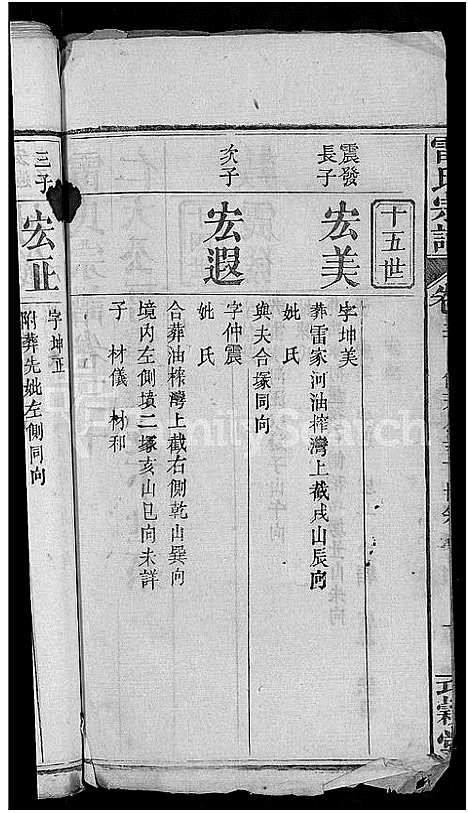 雷氏宗譜
卷
十五世
震發長子
宏美
字坤美
葬雷家河油榨灣上截戌山辰向
妣氏
與夫合塚同向
次子
宏遐
字仲震
妣氏
合葬油榨灣上截右側乾山巽向
境內左側墳二塚亥山巳向未詳
子 材儀 材和
三子
宏正
字坤正
附葬先妣左側同向
FamilySearch